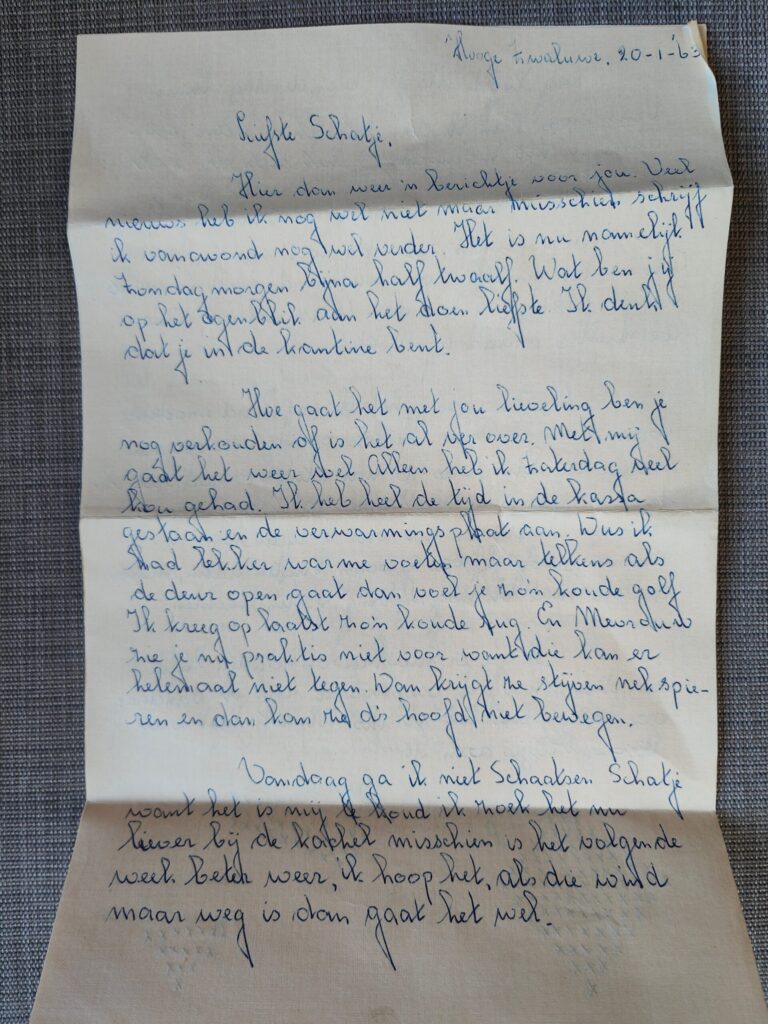 Hooge Zwaluwe, 20-1-'63
Liefste Schatje,
Hier dan weer 'n berichtje voor jou. Veel
nieuws heb ik nog wel niet maar misschien schrijf
ik vanavond nog wel verder. Het is nu namelijk
Zondagmorgen bijna half twaalf. Wat ben jij
op het ogenblik aan het doen liefste. Ik denk
dat je in de kantine bent.
Hoe gaat het met jou lieveling ben je
nog verkouden of is het al over. Met mij
gaat het weer wel Alleen heb ik Zaterdag veel
kou gehad. Ik heb heel de tijd in de kassa
gestaan en de verwarmingsplaat aan. Dus ik
had lekker warme voeten maar telkens als
de deur open gaat dan voel je zo'n koude golf
Ik kreeg op laatst zo'n koude rug. En
zie je nu praktis niet voor want die kan er
helemaal niet tegen. Dan krijgt ze stijven nekspie-
ren en dan kan ze d'r hoofd niet bewegen.
Vandaag ga ik niet Schaatsen Schatje
want het is mij te koud ik zoek het nu
liever bij de kachel misschien is het volgende
week beter weer, ik hoop het, als die wind
maar weg is dan gaat het wel.